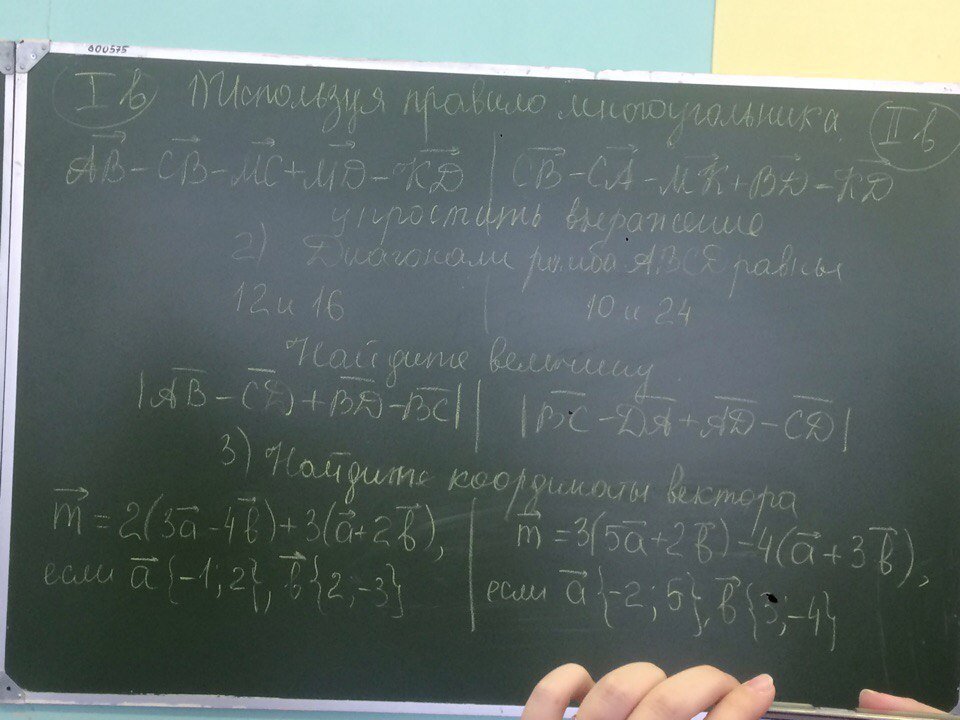 600575
I в 1) Используя правило многоугольника. II в
AB - CB - MC + MD - KD | CB - CA - MK + BD - KD
упростить выражение
2) Диагонали ромба ABCD равны
12 и 16 10 и 24
Найдите величину
|AB - CD + BD - BC| |BC - DA + AD - CD|
3) Найдите координаты вектора
m = 2(3a - 4b) + 3(a + 2b), m = 3(5a + 2b) - 4(a + 3b),
если a{-1; 2}, b{2; -3} если a{-2; 5}, b{3; -4}